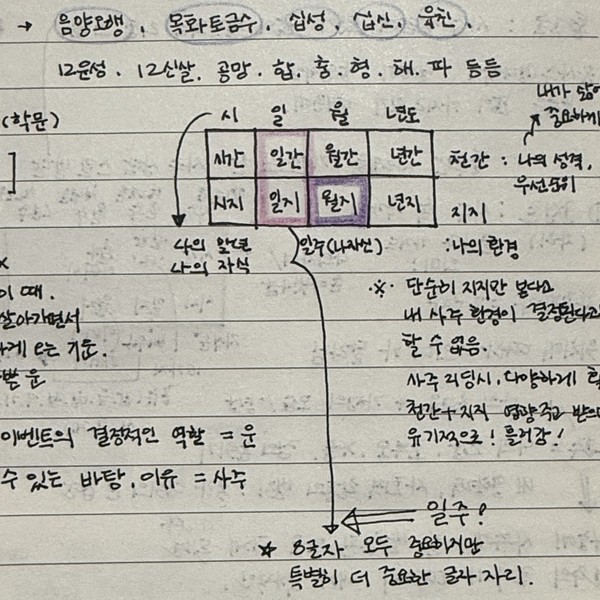 → 음양오행, 목화토금수, 십성, 십신, 육친.
12운성. 12신살. 공망. 합. 충. 형. 해. 파 등등
(학문)
시 일 월 년도
시간 일간 월간 년간
시지 일지 월지 년지
내가 삶에
중요하게
천간 : 나의 성격,
우선순위
지지
: 나의 환경
나의 말년
나의 자식
일주(나자신)
이 때.
살아가면서
하게 되는 기준.
쁜 운
이벤트의 결정적인 역할 = 운
수 있는 바탕, 이유 = 사주
※ 단순히 지지만 본다고
내 사주 환경이 결정된다고
할 수 없음.
사주 리딩시, 다양하게
천간+지지 영향 주고 받으며
유기적으로! 흘러감!
일주!
★ 8글자 모두 중요하지만
특별히 더 중요한 글자 자리.